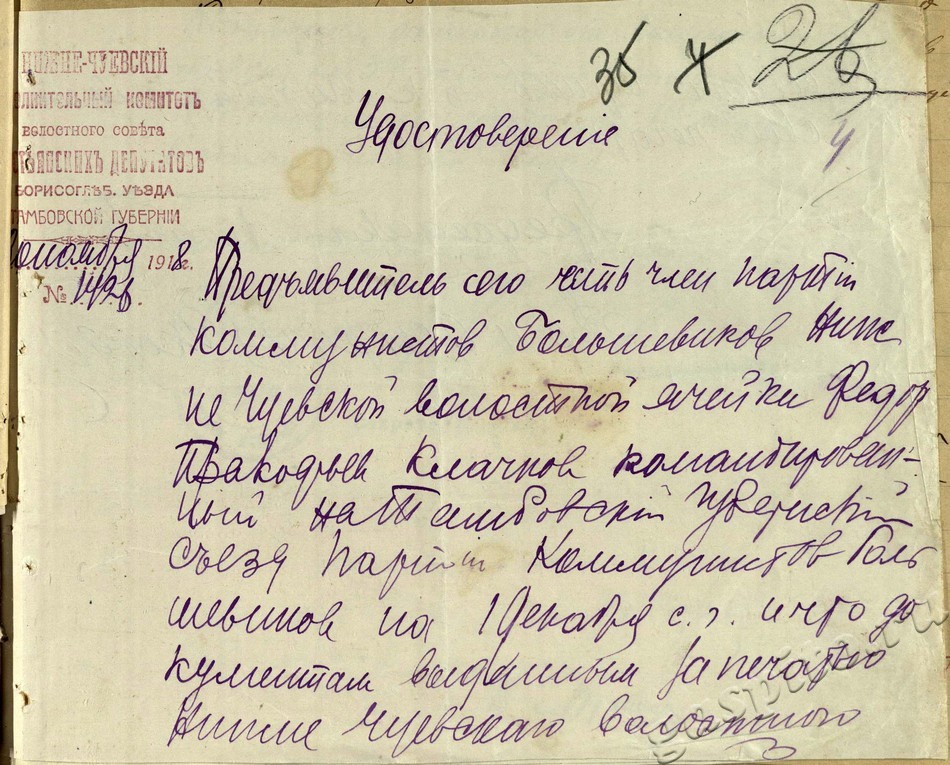 35 4 26
4
НИЖНЕ-ЧУЕВСКІЙ
ОЛНИТЕЛЬНЫЙ КОМИТЕТЪ
волостного совѣта
СТЬЯНСКИХЪ ДЕПУТАТОВЪ
БОРИСОГЛѢБ. УѢЗДА
ТАМБОВСКОЙ ГУБЕРНІИ
1918г.
№ 1426.
Удостоверение
Предъявитель сего есть член партіи
коммунистов Большевиков Ниж
не Чуевской волостной ячейки Федор
Клачков командирован-
ный на Тамбовскій Губернскій
съезд партіи Коммунистов Боль
шевиков на 1 Декабря с. г. и что до
кументам выданным за печатью
Нижне Чуевскаго Волостного